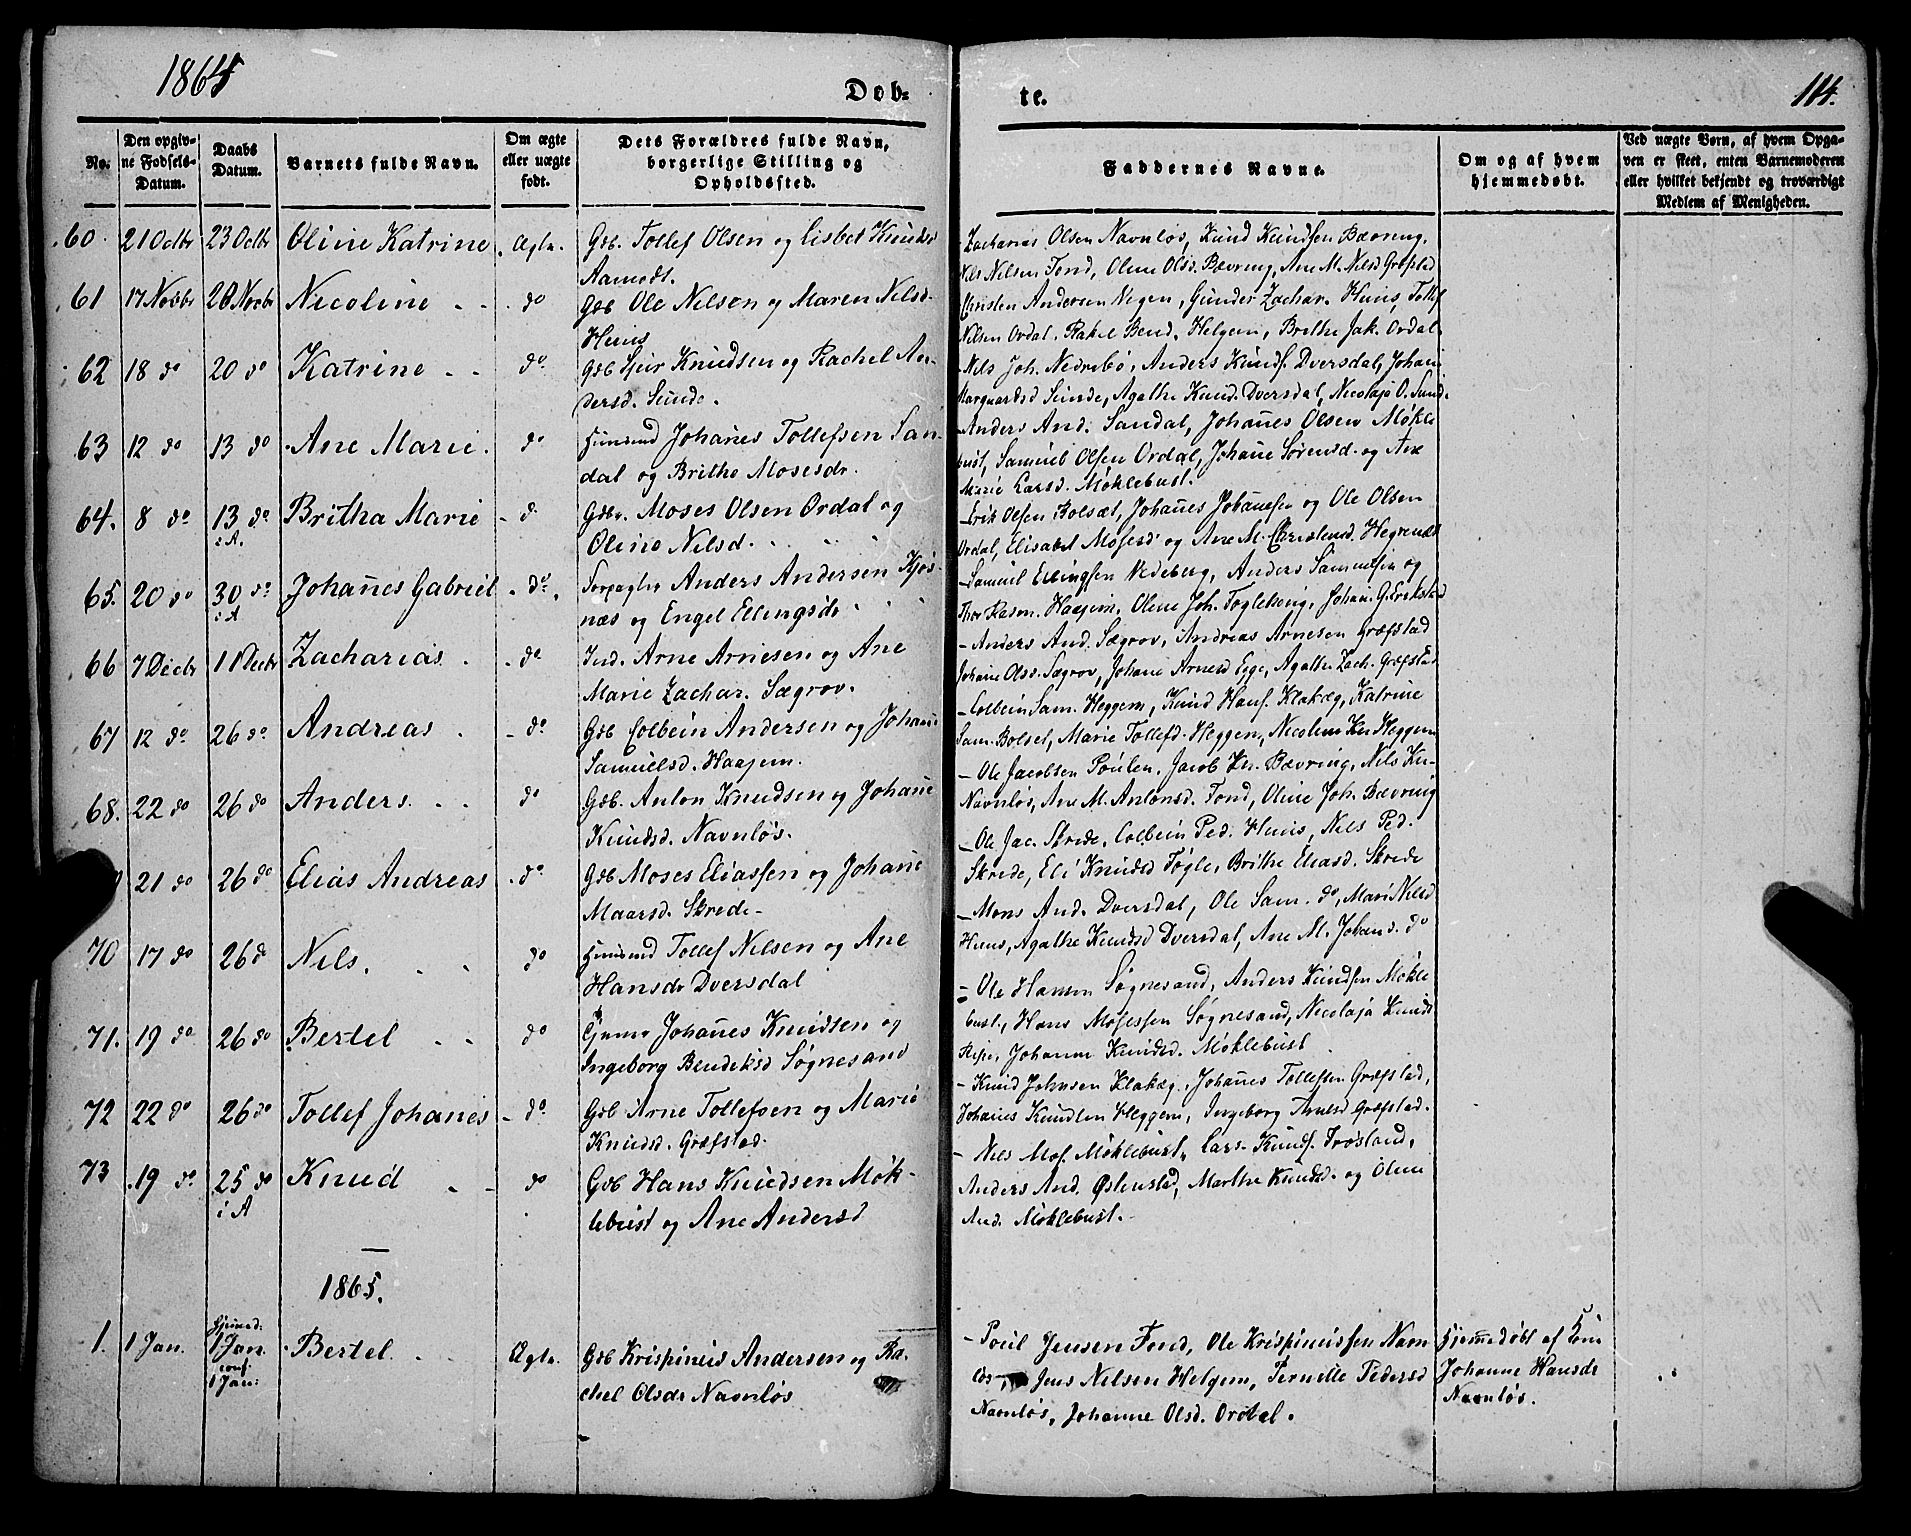 1864
Døb-
te.
114.
No.
Den opgiv-
ne Fødsels-
Datum.
Daabs
Datum.
Barnets fulde Navn.
Om ægte
eller uægte
født.
Dets Forældres fulde Navn,
borgerlige Stilling og
Opholdssted.
Faddernes Navne.
Om og af hvem
hjemmedøbt.
Ved uægte Børn, af hvem Opga-
ven er skeet, enten Barnemoderen
eller hvilket bekjendt og troværdigt
Medlem af Menigheden.
60. 21 Octbr 23 Octbr Oline Katrine Ægte. Gdb. Tollef Olsen og Lisbet Knuds
Aamodt.
Zacharias Olsen Navnløs, Knud Knudsen Bævring,
Nils Nilsen Fond, Oline Olsd. Bævring, Ane M. Nilsd Græfstad
61 17 Novbr 20 Novbr Nicoline do Gdb Ole Nilsen og Maren Nilsd.
Huus
Christen Andersen Negen, Gunder Zachar. Huus, Tollef
Nilsen Ordal, Rakel Bend. Helgem, Brithe Jak. Ordal
62 18 do 20 do Katrine do Gdb Knudsen og Rachel An-
dersd. Sunde.
Nils Joh. Nedrebø, Anders Knuds. Dversdal, Johan
Sunde, Agathe Knud. Dversdal, Nicolaja O. Sund.
63 12 do 13 do Ane Marie. do Huusmd Johanes Tollefsen San-
dal og Brithe Mosesdr.
Anders And. Sandal, Johanes Olsen Møkle
bust, Samuel Olsen Ordal, Johane Sørensd. og Ane
Marie Larsd. Møklebust.
64. 8 do 13 do Britha Marie do Gdbr. Moses Olsen Ordal og
i A.
Oline Nilsd.
Erik Olsen Bolsæt, Johanes Johanesen og Ole Olsen
Ordal, Elisabet Mosesd og Ane M. Christensd. Hegrenæs
65. 20 do 30 do Johanes Gabriel do. Forpagter Anders Andersen Kjøs-
i A
næs og Engel Ellingsdr
Samuel Ellingsen Vedeberg, Anders Samuelsen og
Thor Rasm. Haajem, Oline Joh. Fogleheng, Johan G. Erikstad
66 7 Decbr 11 Decbr Zacharias. do Ind. Arne Arnesen og Ane
Marie Zachar. Sægrov.
Anders And. Sægrov, Andreas Arnesen Græfstad
Johane Olsd. Sægrov, Johane Arnesd Egge, Agathe Zach. Græfstad
67 12 do 26 do Andreas do Gdb Colbein Andersen og Johane
Samuelsd. Haajem.
Colbein Sam. Heggem, Knud Hans. Klakæg, Katrine
Sam. Bolset, Marie Tollefd. Heggem, Nicoline Kn Heggem
68. 22 do 26 do Anders do Gdb. Anton Knudsen og Johane
Knudsd. Navnløs.
Ole Jacobsen Foulen, Jacob Kn. Bævring, Nils Kn.
Navnløs, Ane M. Antonsd. Fond, Oline Joh. Bævring
21 do 26 do Elias Andreas do Gdb Moses Eliassen og Johane
Maarsd. Skrede
Ole Jac. Skrede, Colbein Ped. Huus, Nils Ped.
Skrede, Eli Knudsd Føgle, Brithe Eliasd. Skrede
70 17 do 26 do Nils. do Huusmd Tollef Nilsen og Ane
Hansdr Dversdal
Mons And. Dversdal, Ole Sam. do, Mari Nilsd
Huus, Agathe Knudsd Dversdal, Ane M. Johans. do
71. 19 do 26 do Bertel do Johanes Knudsen og
Ingeborg Bendiksd Søgnesand
Ole Hansen Søgnesand, Anders Knudsen Møkle
bust, Hans Mosessen Søgnesand, Nicolaja Knuds
Ripe, Johanne Knudsd. Møklebust
72 22 do 26 do Tollef Johanes do Gdb Arne Tollefsen og Marie
Knudsd. Græfstad.
Knud Johnsen Klakæg, Johanes Tollefsen Græfstad,
Johanes Knudsen Heggem, Ingeborg Græfstad.
73 19 do 25 do Knud do Gdb Hans Knudsen Møk-
i A
lebust og Ane Andersd
Nils Mos. Møklebust, Lars Knuds. Frøsland,
Anders And. Østenstad, Marthe Knudsd. og Oline
And. Møklebust.
1865.
1. 1 Jan. hjemd. 1 Jan. conf. 1 Jan. Bertel Ægte. Gdb Krispinus Andersen og Ra-
chel Olsdr Navnløs
Poul Jensen Fond, Ole Krispinussen Navn
løs, Jens Nilsen Helgem, Pernille Pedersd
Navnløs, Johanne Olsd. Ordal.
Hjemmedøbt af
Johanne Hansdr
Navnløs.